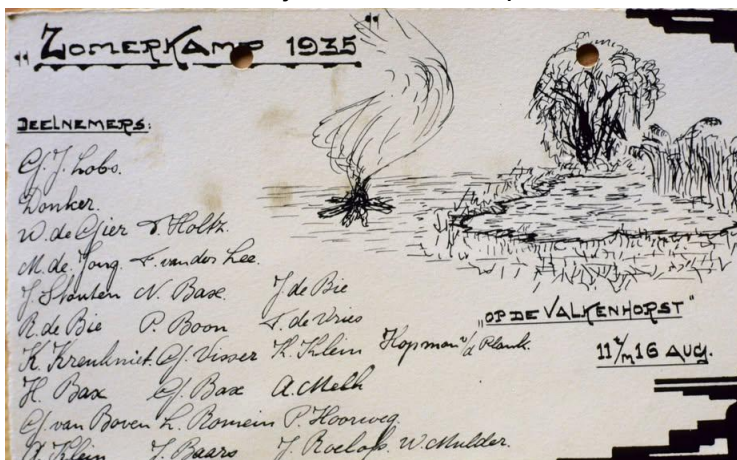 „ZOMERKAMP 1935"
DEELNEMERS:
G. J. Lobo.
Donker.
W. de Gier T. Holtz.
M. de Jong. F. van der Lee.
J. Stouten N. Bax. J de Bie
R. de Bie P. Boon F. de Vries
K. Kreukniet. G. Visser K. Klein Hopman v/d Plank.
H. Bax G. Bax A. Melk
G. van Boven L. Romein P. Hoorweg.
A. Klein J. Baars J. Roelofs. W. Mulder.
„OP DE VALKENHORST"
11 t/m 16 AUG.